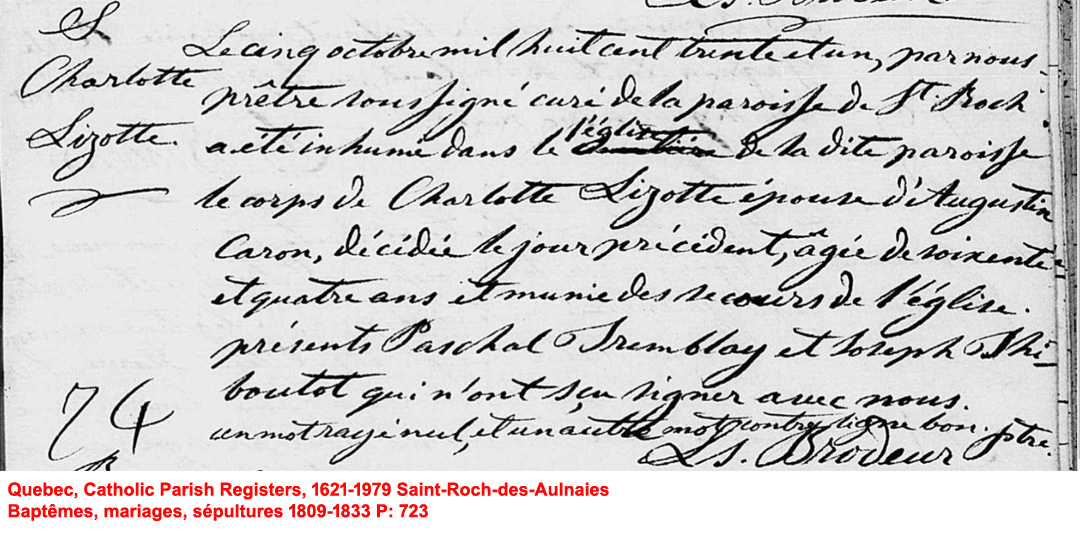 S
Charlotte
Lizotte.
Le cinq octobre mil huit cent trente et un, par nous
prêtre soussigné curé de la paroisse de St Roch
a été inhumé dans le l'église cimetière de la dite paroisse
le corps de Charlotte Lizotte épouse d'Augustin
Caron, décédée le jour précédent, âgée de soixente
et quatre ans et munie des secours de l'église.
présents Paschal Tremblay et Joseph Thi-
boutot qui n'ont sçu signer avec nous.
un mot rayé nul, et un autre mot contresigné bon.
Ls. Brodeur ptre.
74
Quebec, Catholic Parish Registers, 1621-1979 Saint-Roch-des-Aulnaies
Baptêmes, mariages, sépultures 1809-1833 P: 723